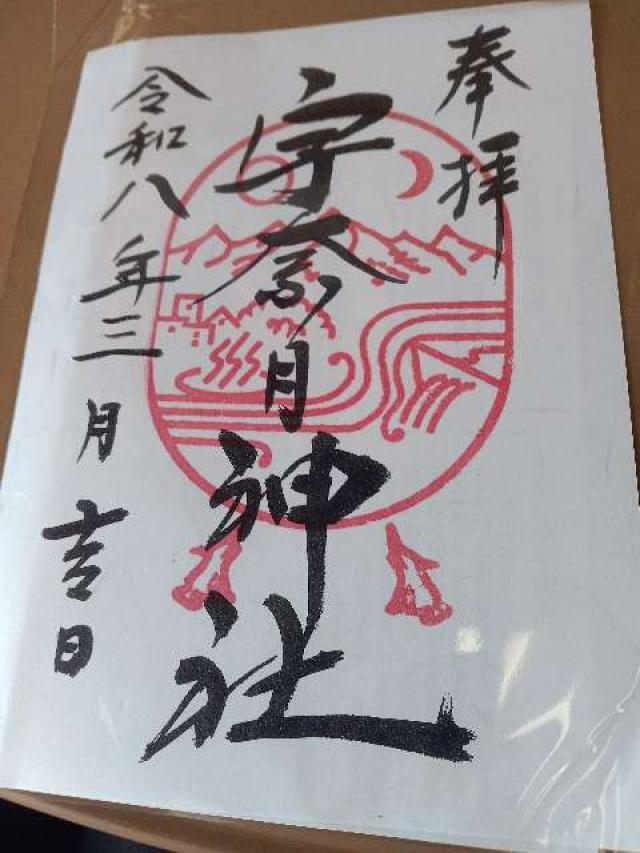 奉拝
宇奈月神社
令和八年三月吉日